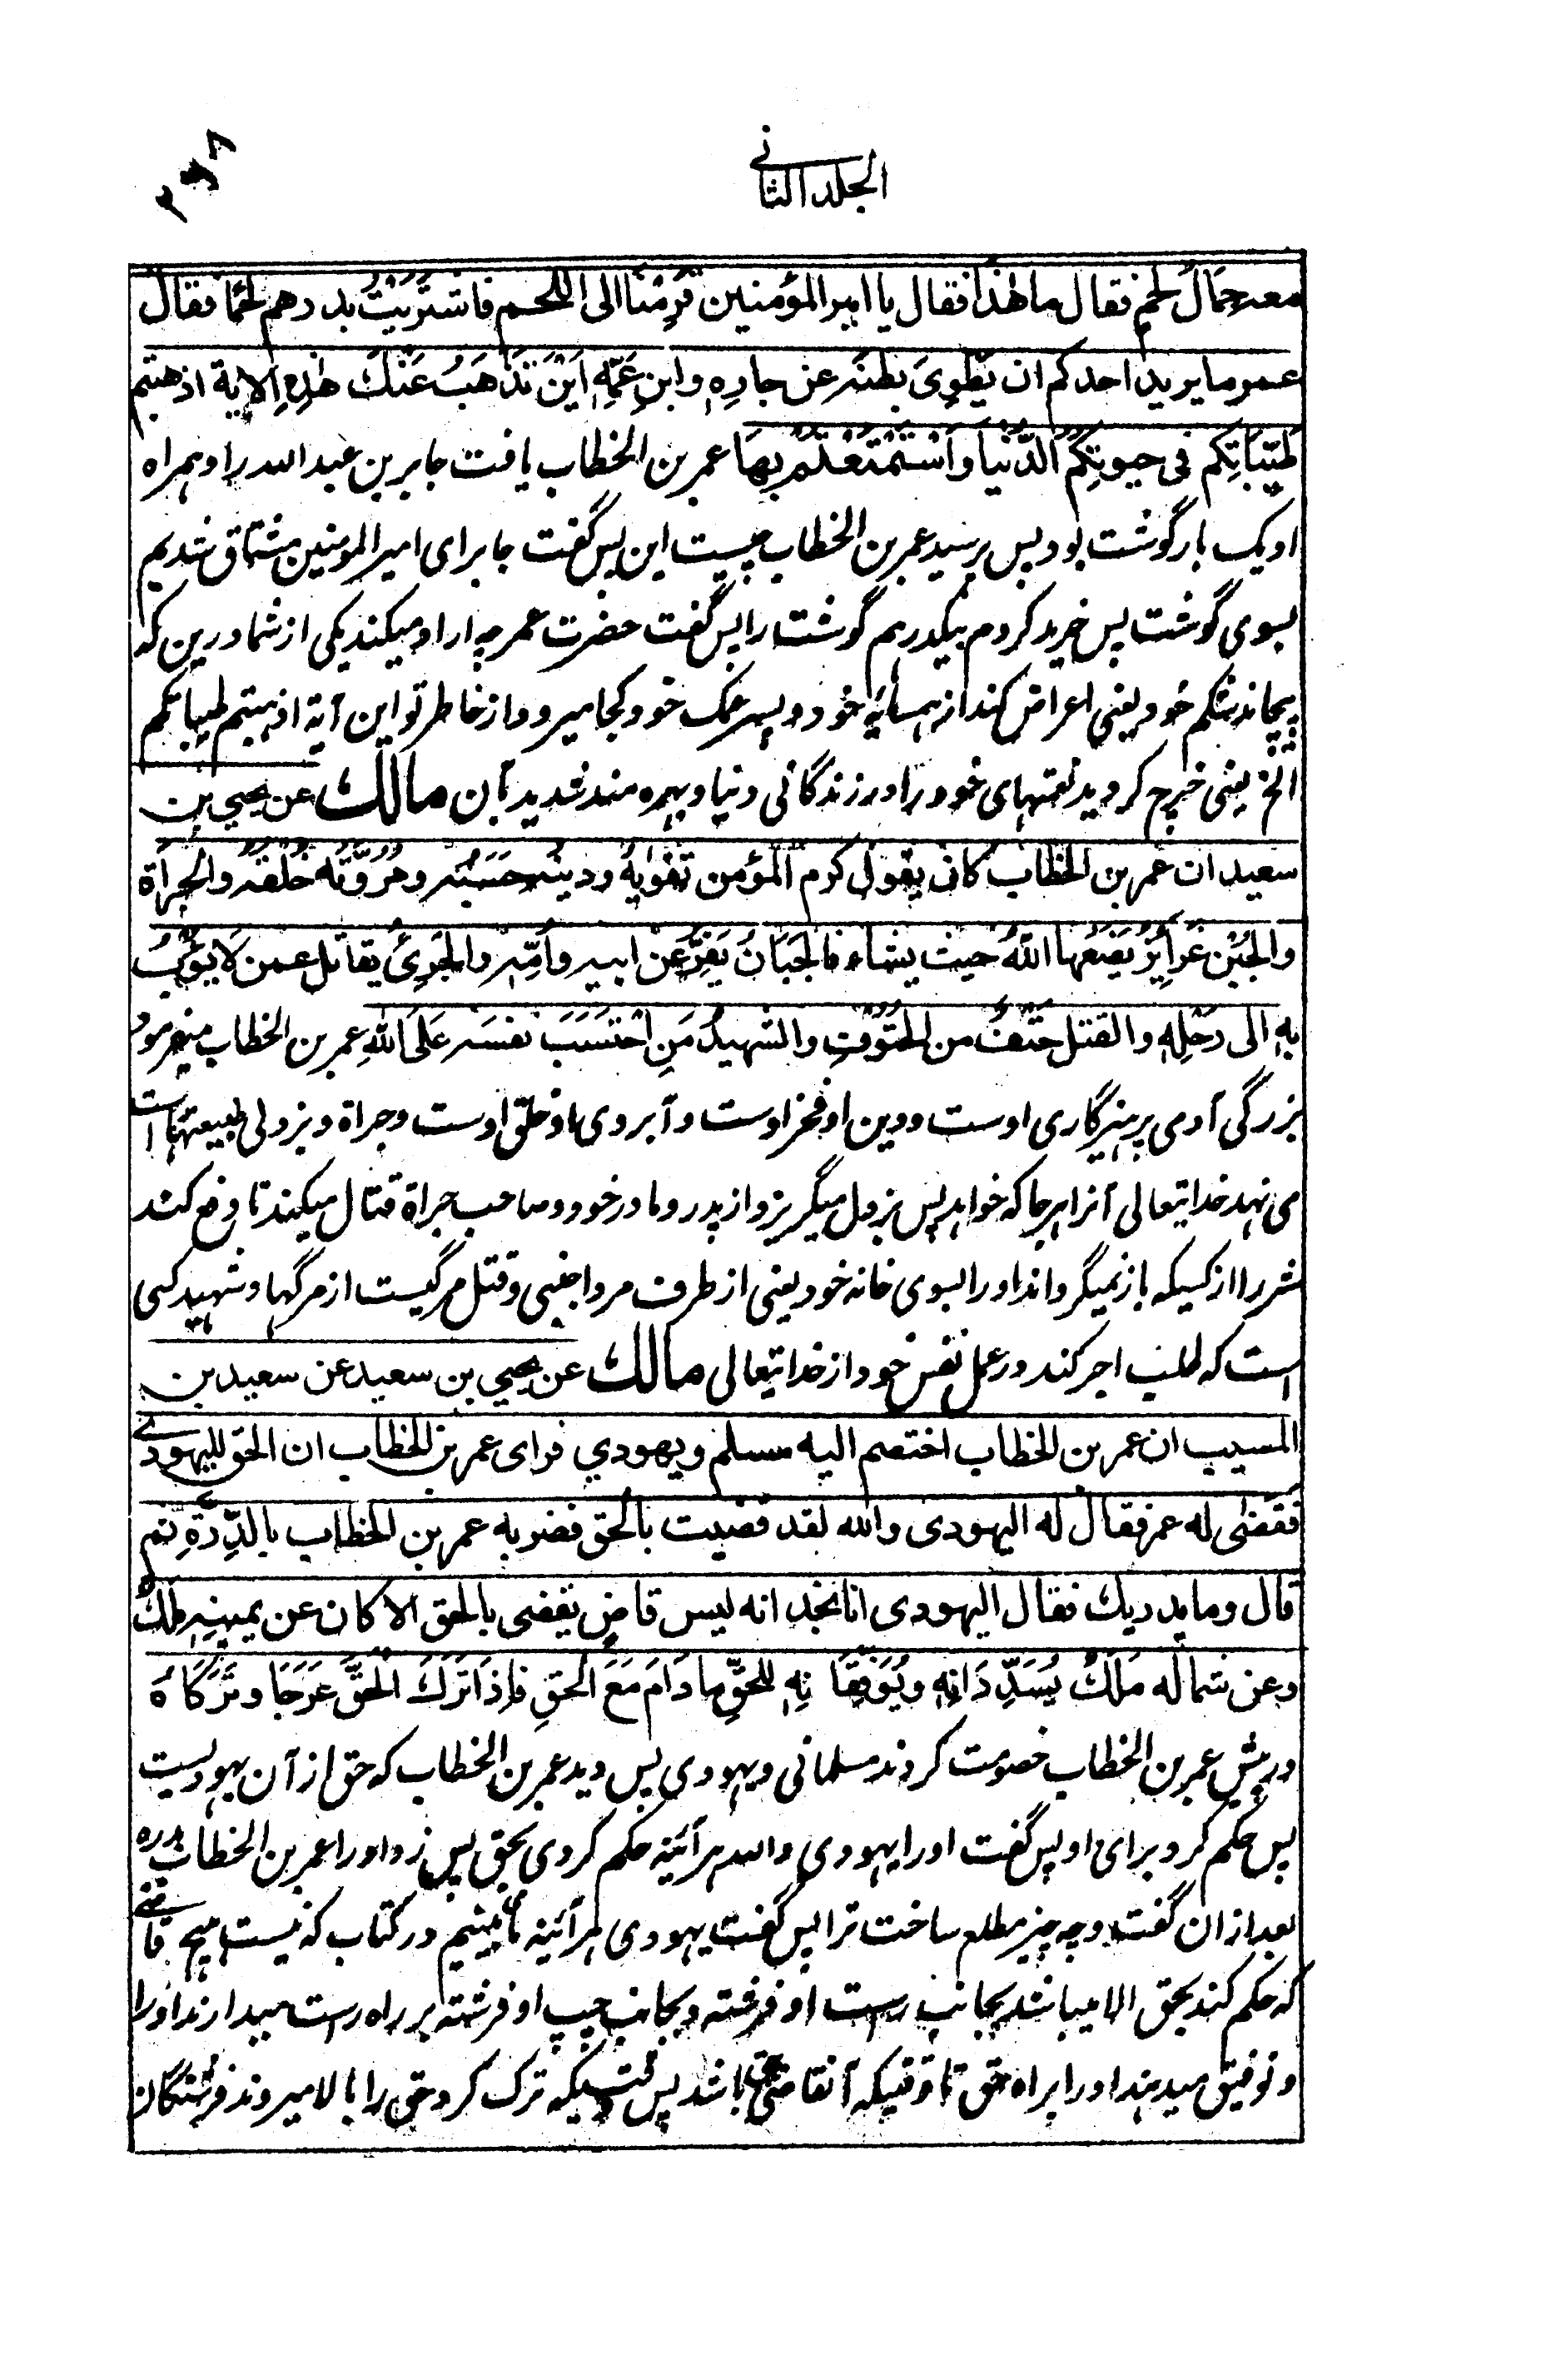 الجلد الثانی
معه حِمَالُ لحمٍ فقال ما هذا فقال یا امیر المؤمنین قَرِمْنَا الی اللحم فاشتَرَیْتُ بدرهم لحمًا فقال
عمر ما یرید احدکم ان یَطْوِیَ بطنَه عن جارِهٖ وابنِ عَمِّهٖ اَیْنَ تَذْهَبُ عَنْكَ هٰذِهِ الایة اذهبتم
طَیِّبَاتِکم فی حیوتِکُمُ الدُّنْیَا وَاسْتَمْتَعْتُمْ بِهَا عمر بن الخطاب یافت جابر بن عبد الله را و همراه
او یک بار گوشت بود پس پرسید عمر بن الخطاب چیست این پس گفت جابر ای امیر المومنین مشتاق شدیم
بسوی گوشت پس خرید کردم بیکدرهم گوشت را پس گفت حضرت عمر چه اراده میکند یکی از شما درین که
بپیچاند شکم خود یعنی اعراض کند از همسایهٔ خود و پسر عمک خود کجا میرود از خاطر تو این آیة اذهبتم طیباتکم
الخ یعنی خرچ کردید نعمتهای خود را در زندگانی دنیا و بهره مند شدید بآن مالك عن یحیی بن
سعید ان عمر بن الخطاب کان یقول کرم المؤمن تَقْوَاهُ ودینُه حَسَبُه ومُرُوَّتُه خُلُقُه والجُرأة
والجُبْن غَرَایِزُ یَضَعُها اللهُ حیث یشاء فالجَبَانُ یَفِرُّ عن ابیه واُمِّه والجَرِیُٔ یقاتل عمن لَا یَؤُبُ
بِهٖ الی رَحْلِهٖ والقتل حَتْفٌ من الحُتُوْفِ والشهیدُ مَنِ احْتَسَبَ نفسَه عَلَی اللهِ عمر بن الخطاب میفرمود
بزرگی آدمی پرهیزگاری اوست و دین او فخر اوست و آبروی او خلق اوست و جراة و بزدلی طبیعتهاست
می نهد خدایتعالی آنرا هر جا که خواهد پس بزدل میگریزد از پدر و مادر خود و صاحب جراة قتال میکند تا دفع کند
شر را از کسیکه باز نمیگرداند او را بسوی خانه خود یعنی از طرف مرد اجنبی و قتل مرگیست از مرگها و شهید کسی
است که طلب اجر کند در عمل نفس خود از خدایتعالی مالك عن یحیی بن سعید عن سعید بن
المسیب ان عمر بن الخطاب اختصم الیه مسلم ویهودي فرای عمر بن الخطاب ان الحق للیهودی
فَقَضٰی له عمر فقال له الیهودی والله لقد قضیت بالحق فضربه عمر بن الخطاب بالدِّرَّةِ ثم
قال وما یدریك فقال الیهودی انا نجد انه لیس قاضٍ یقضی بالحق الا کان عن یمینِه مَلَكٌ
وعن شماله مَلَكٌ یُسَدِّدَانِهٖ ویُوَفِّقَانِهٖ للحقِّ ما دَامَ مَعَ الحَقِ فاِذَا تَرَكَ الْحَقَّ عَرَجَا وتَرَکَاهُ
در پیش عمر بن الخطاب خصومت کردند مسلمانی و یهودی پس دید عمر بن الخطاب که حق از آن یهودیست
پس حکم کرد برای او پس گفت او را یهودی والله هر آئینه حکم کردی بحق پس زد او را عمر بن الخطاب بدره
بعد ازان گفت و چه چیز مطلع ساخت ترا پس گفت یهودی هر آئینه ما میبینیم در کتاب که نیست هیچ قاضئی
که حکم کند بحق الا میباشد بجانب راست او فرشته و بجانب چپ او فرشته بر راه راست میدارند او را
و توفیق میدهند او را براه حق تا وقتیکه آنقاضی بحق باشد پس وقتیکه ترک کرد حق را بالا میروند فرشتگان